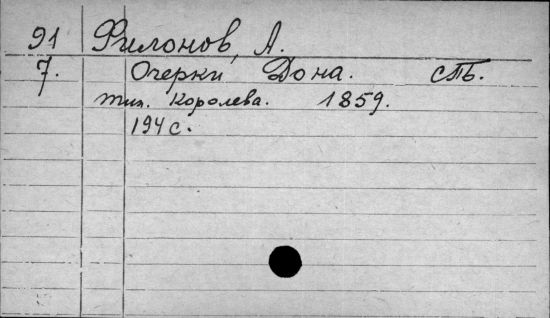 91 Филонов, А.
7. Очерки Дона. СПб.
тип. Королева. 1859.
194 с.